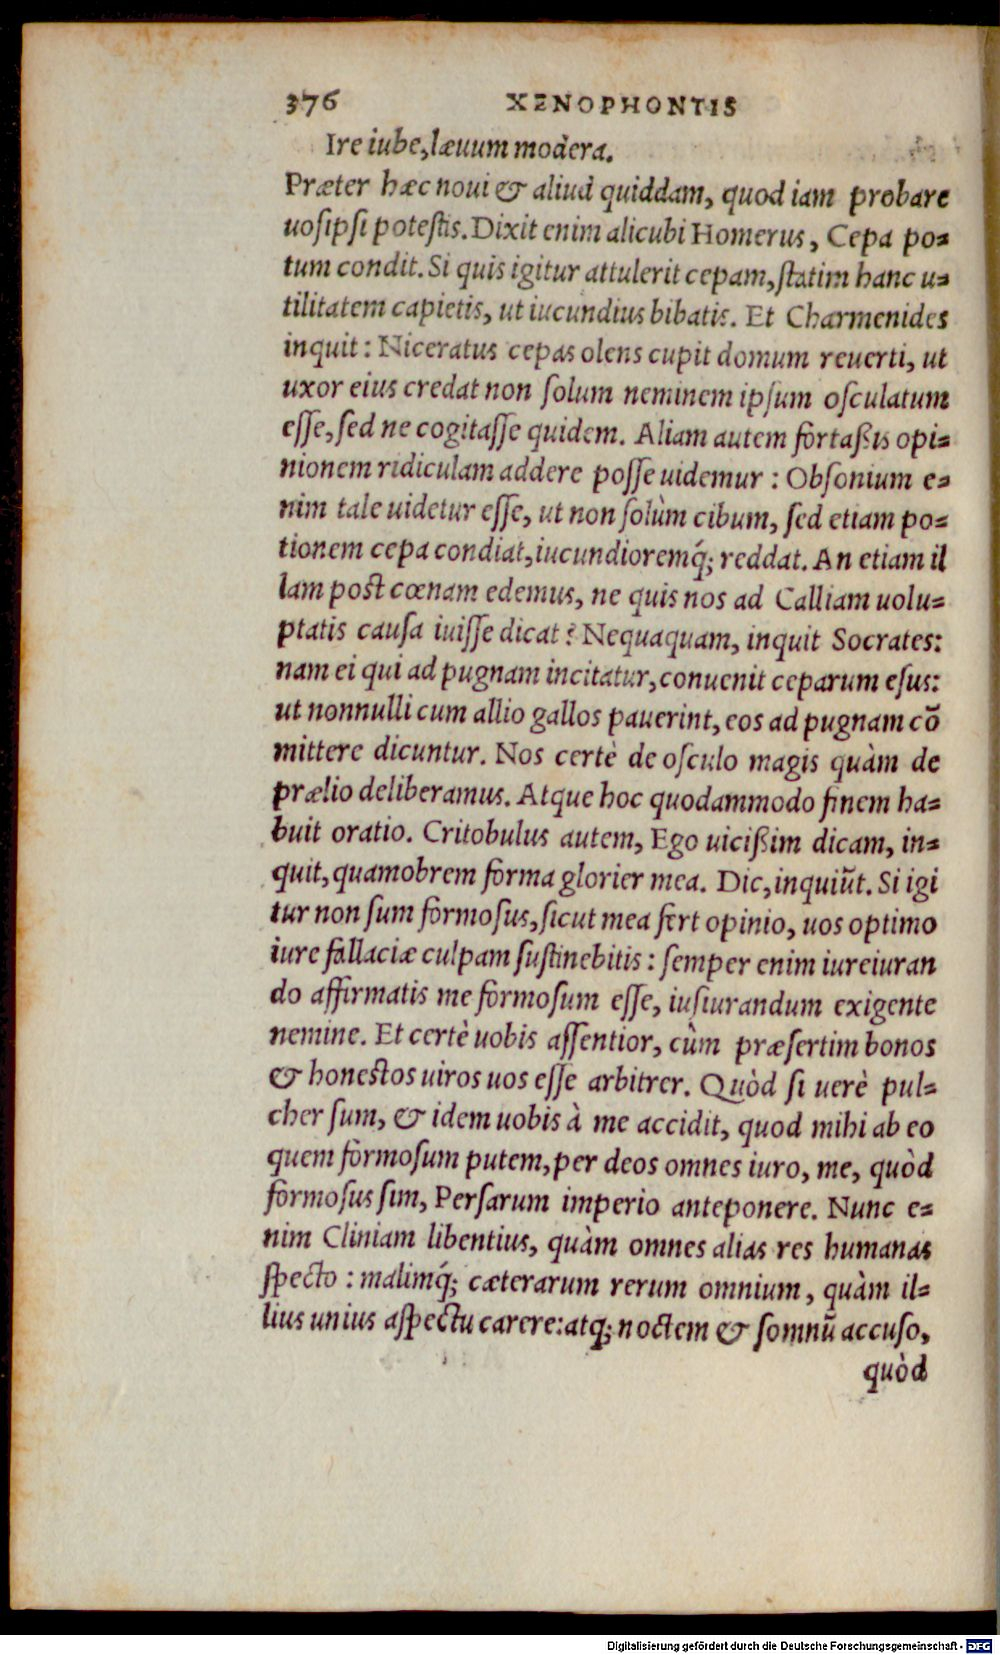 376 XENOPHONTIS
Ire iube, læuum modera.
Præter hæc noui & aliud quiddam, quod iam probare
uosipsi potestis. Dixit enim alicubi Homerus, Cepa po-
tum condit. Si quis igitur attulerit cepam, statim hanc u-
tilitatem capietis, ut iucundius bibatis. Et Charmenides
inquit: Niceratus cepas olens cupit domum reuerti, ut
uxor eius credat non solum neminem ipsum osculatum
esse, sed ne cogitasse quidem. Aliam autem fortaßis opi-
nionem ridiculam addere posse uidemur: Obsonium e-
nim tale uidetur esse, ut non solùm cibum, sed etiam po-
tionem cepa condiat, iucundioremq́; reddat. An etiam il
lam post cœnam edemus, ne quis nos ad Calliam uolu-
ptatis causa iuisse dicat? Nequaquam, inquit Socrates:
nam ei qui ad pugnam incitatur, conuenit ceparum esus:
ut nonnulli cum allio gallos pauerint, eos ad pugnam cō
mittere dicuntur. Nos certè de osculo magis quàm de
prælio deliberamus. Atque hoc quodammodo finem ha-
buit oratio. Critobulus autem, Ego uicißim dicam, in-
quit, quamobrem forma glorier mea. Dic, inquiūt. Si igi
tur non sum formosus, sicut mea fert opinio, uos optimo
iure fallaciæ culpam sustinebitis: semper enim iureiuran
do affirmatis me formosum esse, iusiurandum exigente
nemine. Et certè uobis assentior, cùm præsertim bonos
& honestos uiros uos esse arbitrer. Quòd si uerè pul-
cher sum, & idem uobis à me accidit, quod mihi ab eo
quem formosum putem, per deos omnes iuro, me, quòd
formosus sim, Persarum imperio anteponere. Nunc e-
nim Cliniam libentius, quàm omnes alias res humanas
specto: malimq́; cæterarum rerum omnium, quàm il-
lius unius aspectu carere: atq; noctem & somnū accuso,
quòd
Digitalisierung gefördert durch die Deutsche Forschungsgemeinschaft - DFG